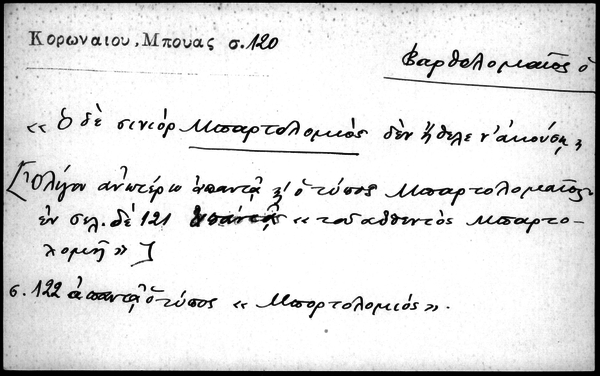 Κορωναιου, Μπουας σ. 120
Βαρθολομαῖος ὁ
« Ὁ δὲ σινιὸρ Μπαρτολομιὸς δὲν ἤθελε ν' ἀκούσῃ »
[Ὀλίγον ἀνωτέρω ἀπαντᾷ κ' ὁ τύπος Μπαρτολομαῖος
ἐν σελ. δὲ 121 « τοῦ ἀθεντὸς Μπαρτο-
λομῆ » ]
σ. 122 ἀπαντᾷ ὁ τύπος « Μπορτολομιός ».